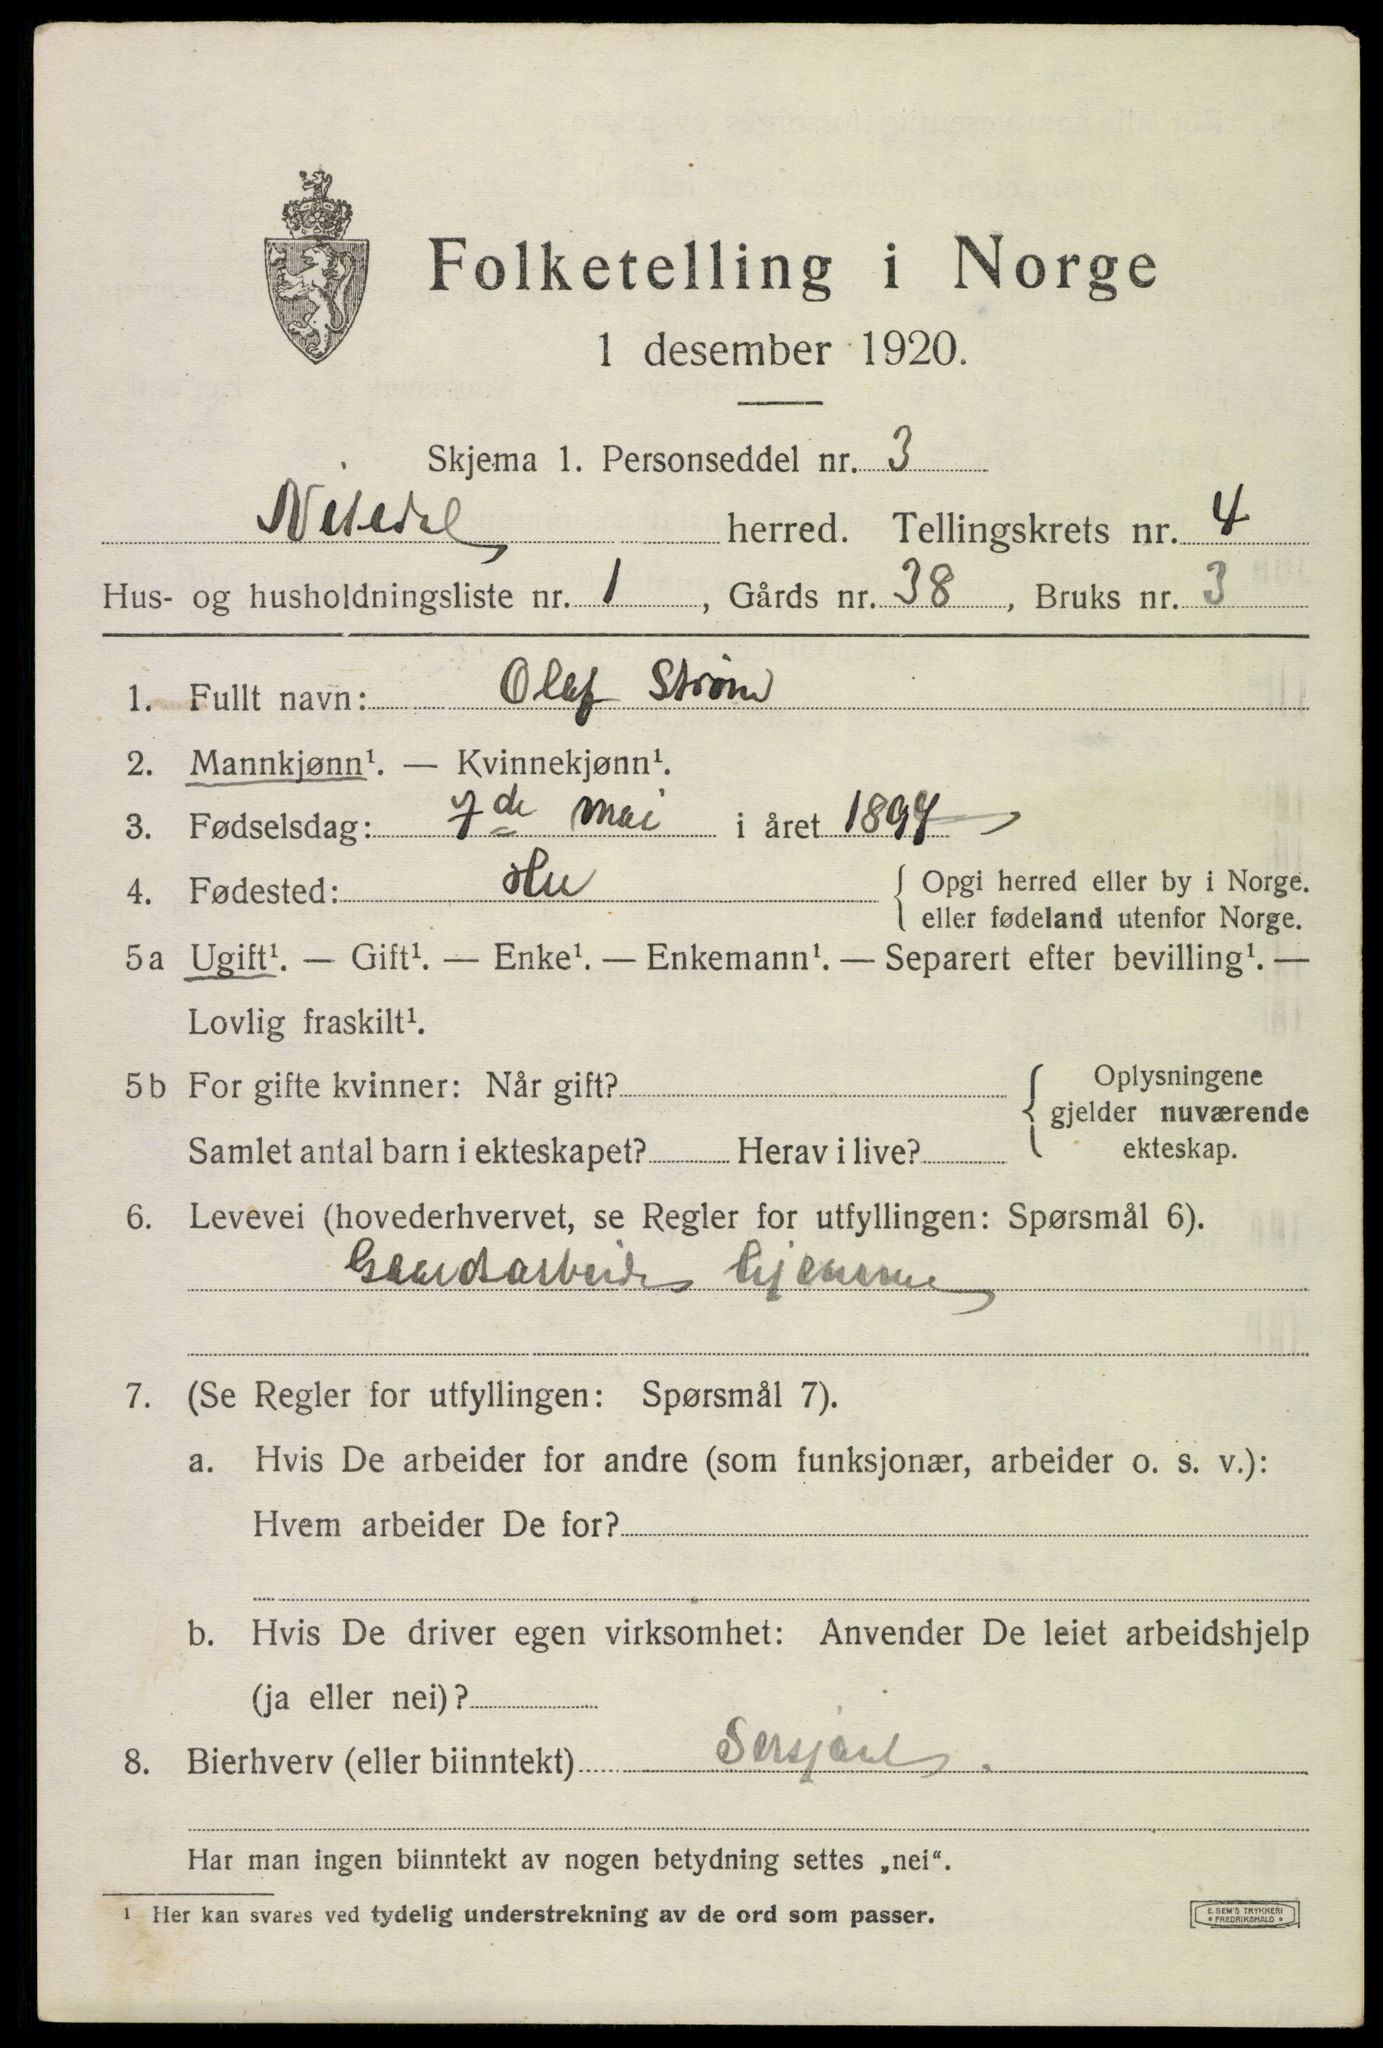 Folketelling i Norge
1 desember 1920.
Skjema 1. Personseddel nr. 3
Nitedal herred. Tellingskrets nr. 4
Hus- og husholdningsliste nr. 1, Gårds nr. 38, Bruks nr. 3
1. Fullt navn: Olaf Strøm
2. Mannkjønn¹. — Kvinnekjønn¹.
3. Fødselsdag: 7de mai i året 1894
4. Fødested: Her { Opgi herred eller by i Norge.
eller fødeland utenfor Norge.
5a Ugift¹. — Gift¹. — Enke¹. — Enkemann¹. — Separert efter bevilling¹. —
Lovlig fraskilt¹.
5b For gifte kvinner: Når gift? { Oplysningene
gjelder nuværende
Samlet antal barn i ekteskapet? Herav i live? ekteskap.
6. Levevei (hovederhvervet, se Regler for utfyllingen: Spørsmål 6).
Gaardsarbeide hjemme
7. (Se Regler for utfyllingen: Spørsmål 7).
a. Hvis De arbeider for andre (som funksjonær, arbeider o. s. v.):
Hvem arbeider De for?
b. Hvis De driver egen virksomhet: Anvender De leiet arbeidshjelp
(ja eller nei)?
8. Bierhverv (eller biinntekt) Sersjant.
Har man ingen biinntekt av nogen betydning settes „nei“.
¹ Her kan svares ved tydelig understrekning av de ord som passer.
E. SEM'S TRYKKERI
* FREDRIKSHALD *